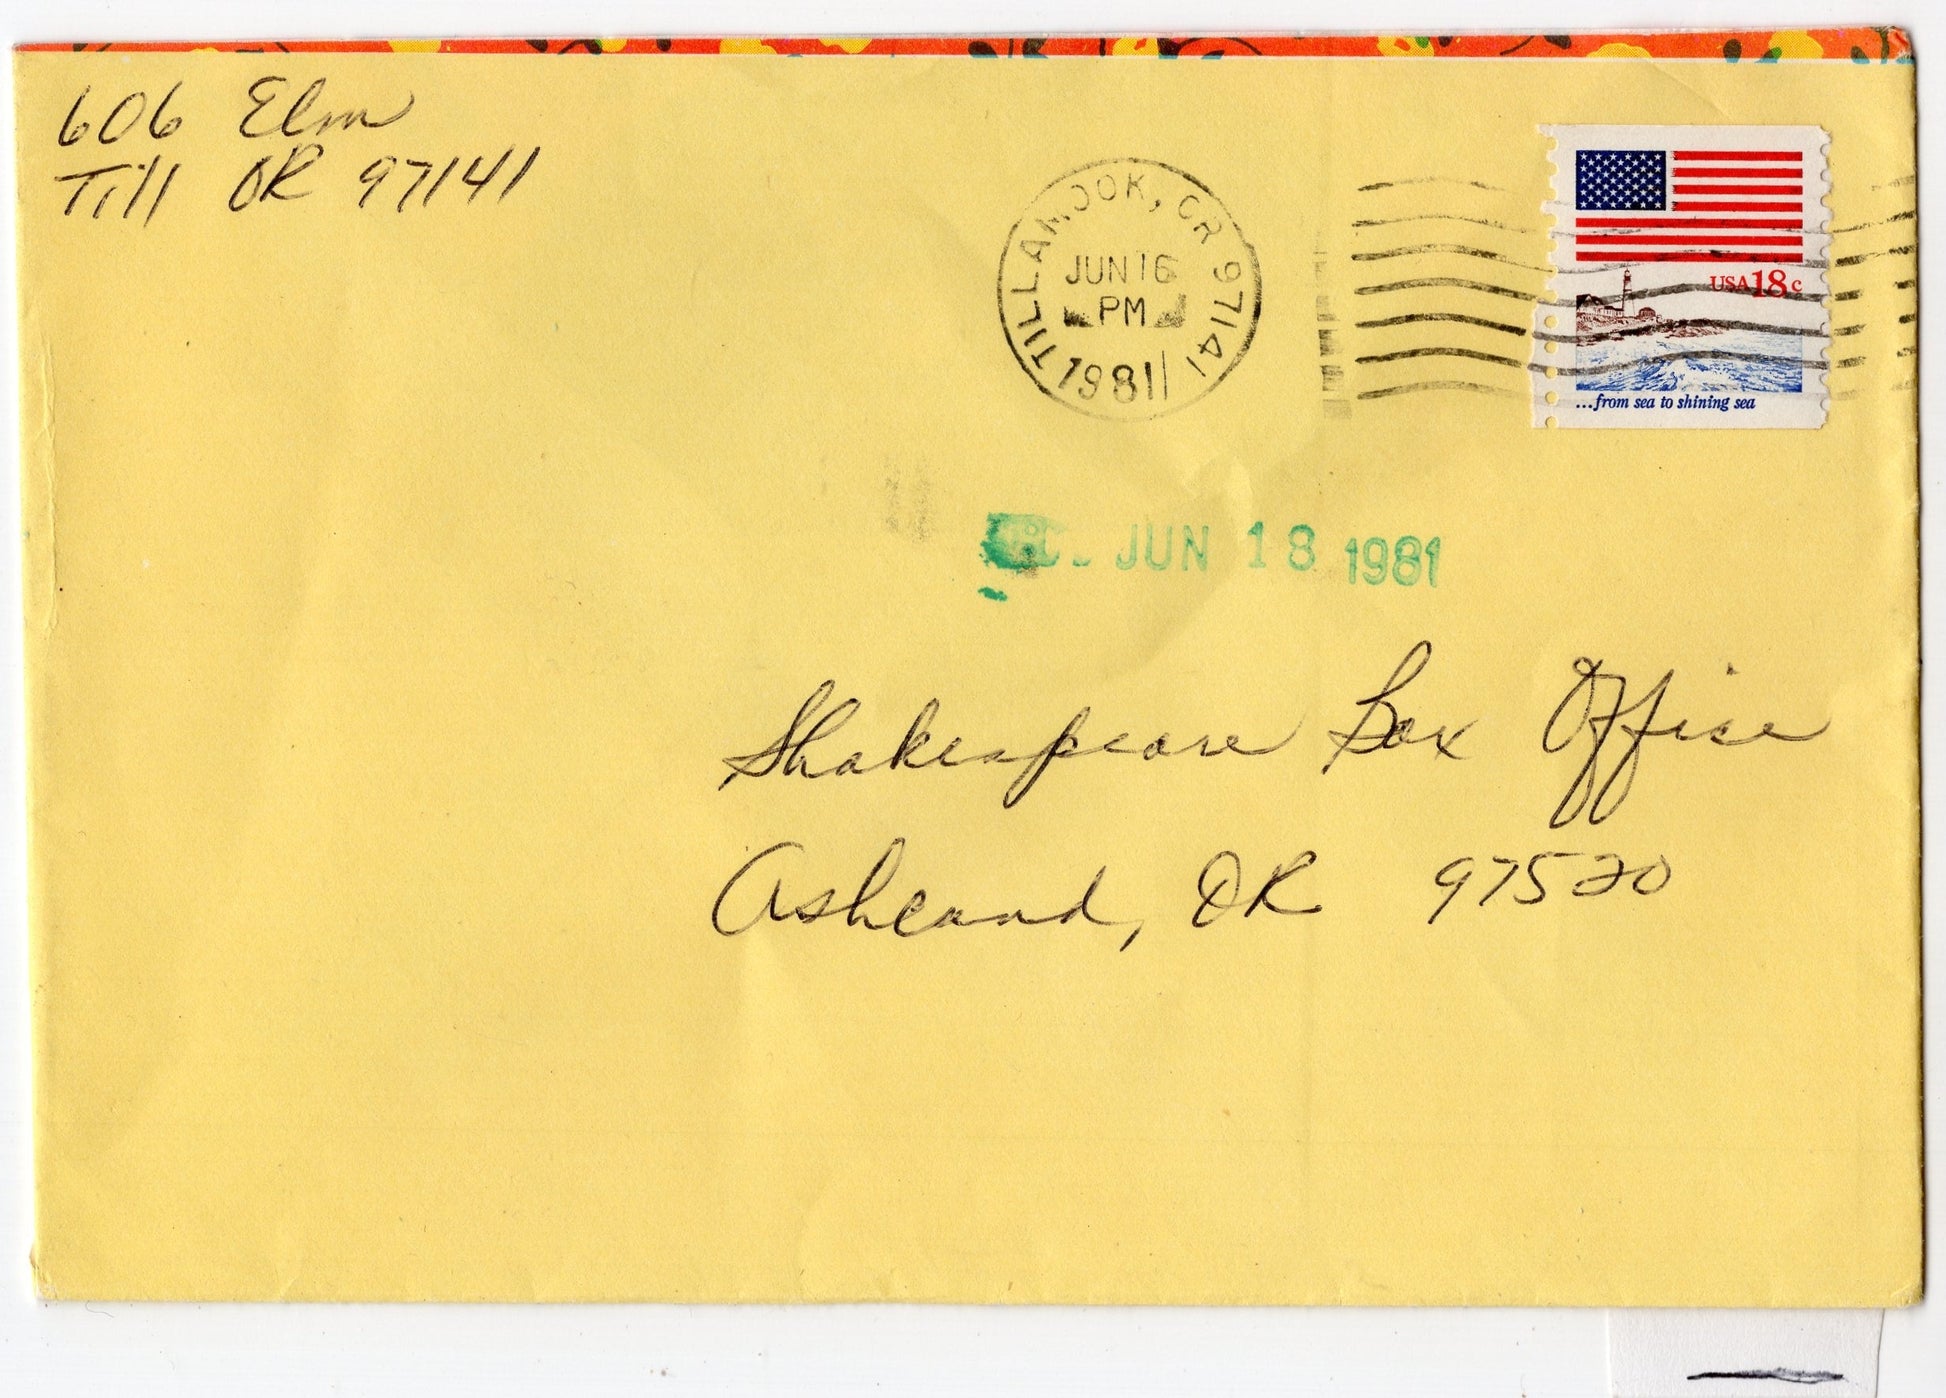 606 Elm
Till OR 97141
TILLAMOOK, OR 97141
JUN 16
PM
1981
USA 18c
...from sea to shining sea
JUN 18 1981
Shakespeare Box Office
Ashland, OR 97520